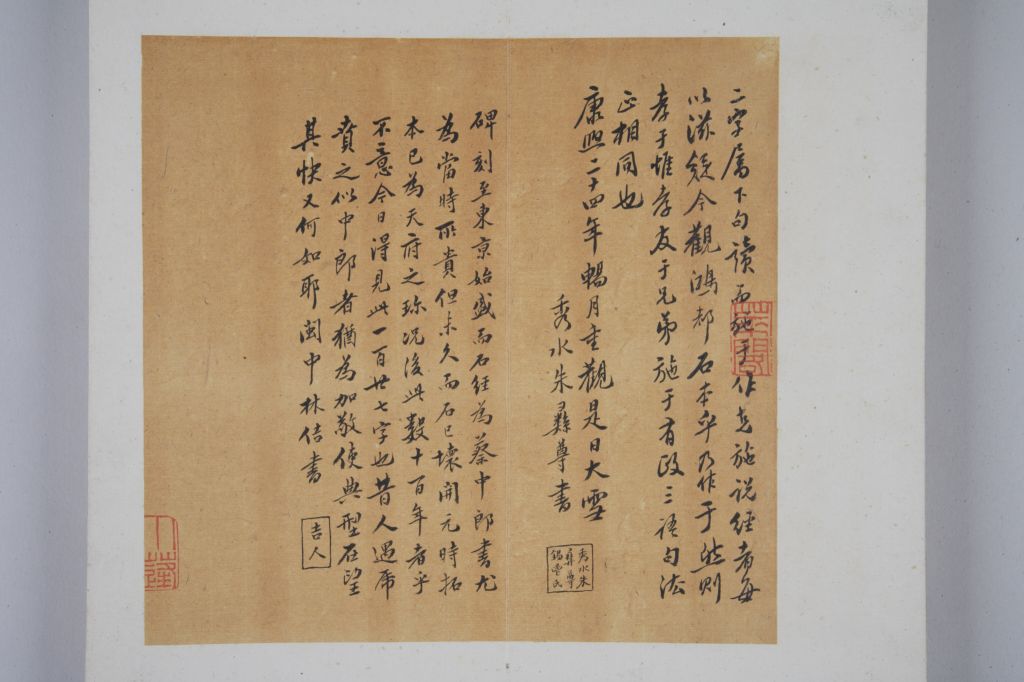 二字屬下句讀而施于作克施説經者每
以滋疑今觀鴻都石本乎乃作于然則
孝于惟孝友于兄弟施于有政三語句法
正相同也
康熙二十四年暢月重觀是日大雪
秀水朱彝尊書
秀水朱
彝尊
錫鬯氏
碑刻至東京始盛而石經為蔡中郎書尤
為當時所貴但未久而石已壞開元時拓
本已為天府之珍況後此數十百年者乎
不意今日得見此一百廿七字也昔人遇虎
賁之似中郎者猶為加敬使典型在望
其快又何如耶閩中林佶書
吉人